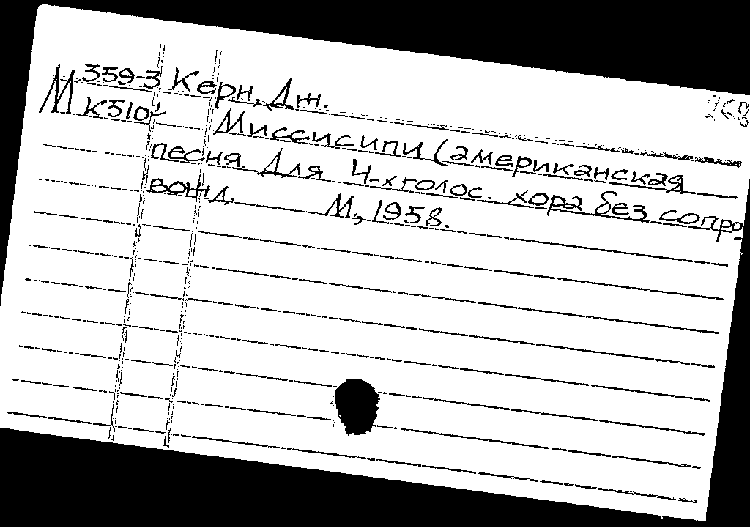 М 359-3 Керн, Дж. 268
К510 Миссисипи (американская
песня для 4-хголос. хора без сопро
вожд. М., 1958.